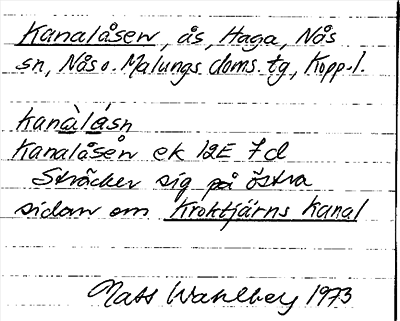 Kanalåsen, ås, Haga, Nås
sn, Nås o. Malungs doms. tg, Kopp-l.
kanàlåsn
Kanalåsen ek 12E 7d
Sträcker sig på östra
sidan om Kroktjärns kanal
Mats Wahlberg 1973